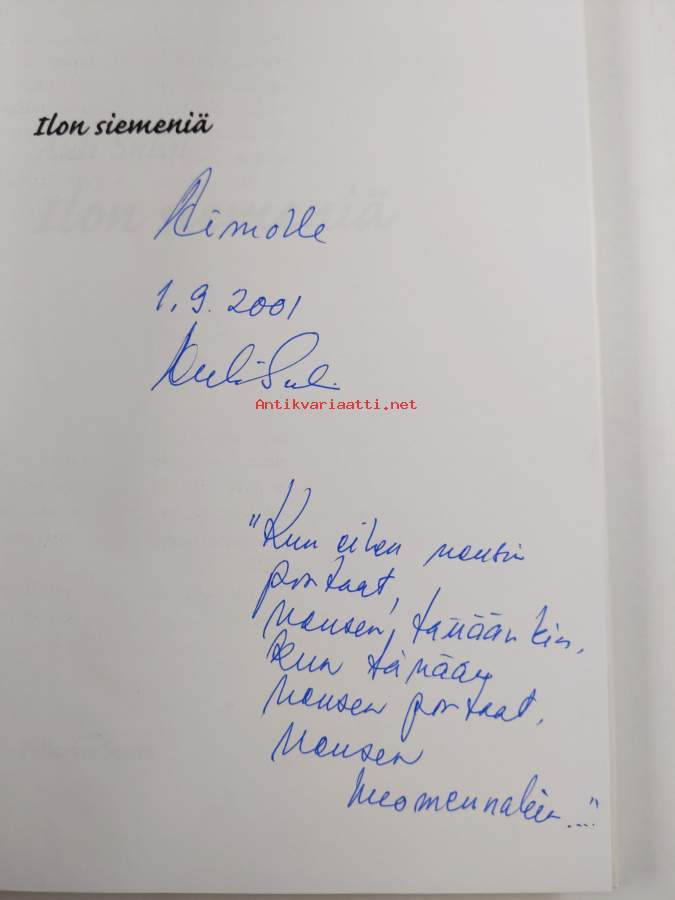 Ilon siemeniä
Aimolle
1.9.2001
Antikvariaatti.net
"Kun eilen nousin
portaat,
nousen, tänäänkin,
kun tänään
nousen portaat,
nousen
huomennakin...."